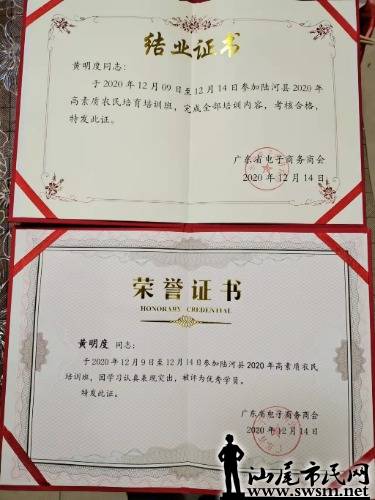 结业证书
黄明度同志：
于2020年12月09日至12月14日参加陆河县2020年
高素质农民培育培训班，完成全部培训内容，考核合格，
特发此证。
广东省电子商务商会
2020年12月14日
荣誉证书
HONORARY CREDENTIAL
黄明度 同志：
于2020年12月9日至12月14日参加陆河县2020年高素质农民
培训班，因学习认真表现突出，被评为优秀学员。
特发此证。
广东省电子商务商会
2020年12月14日
汕尾市民网
www.swsm.net